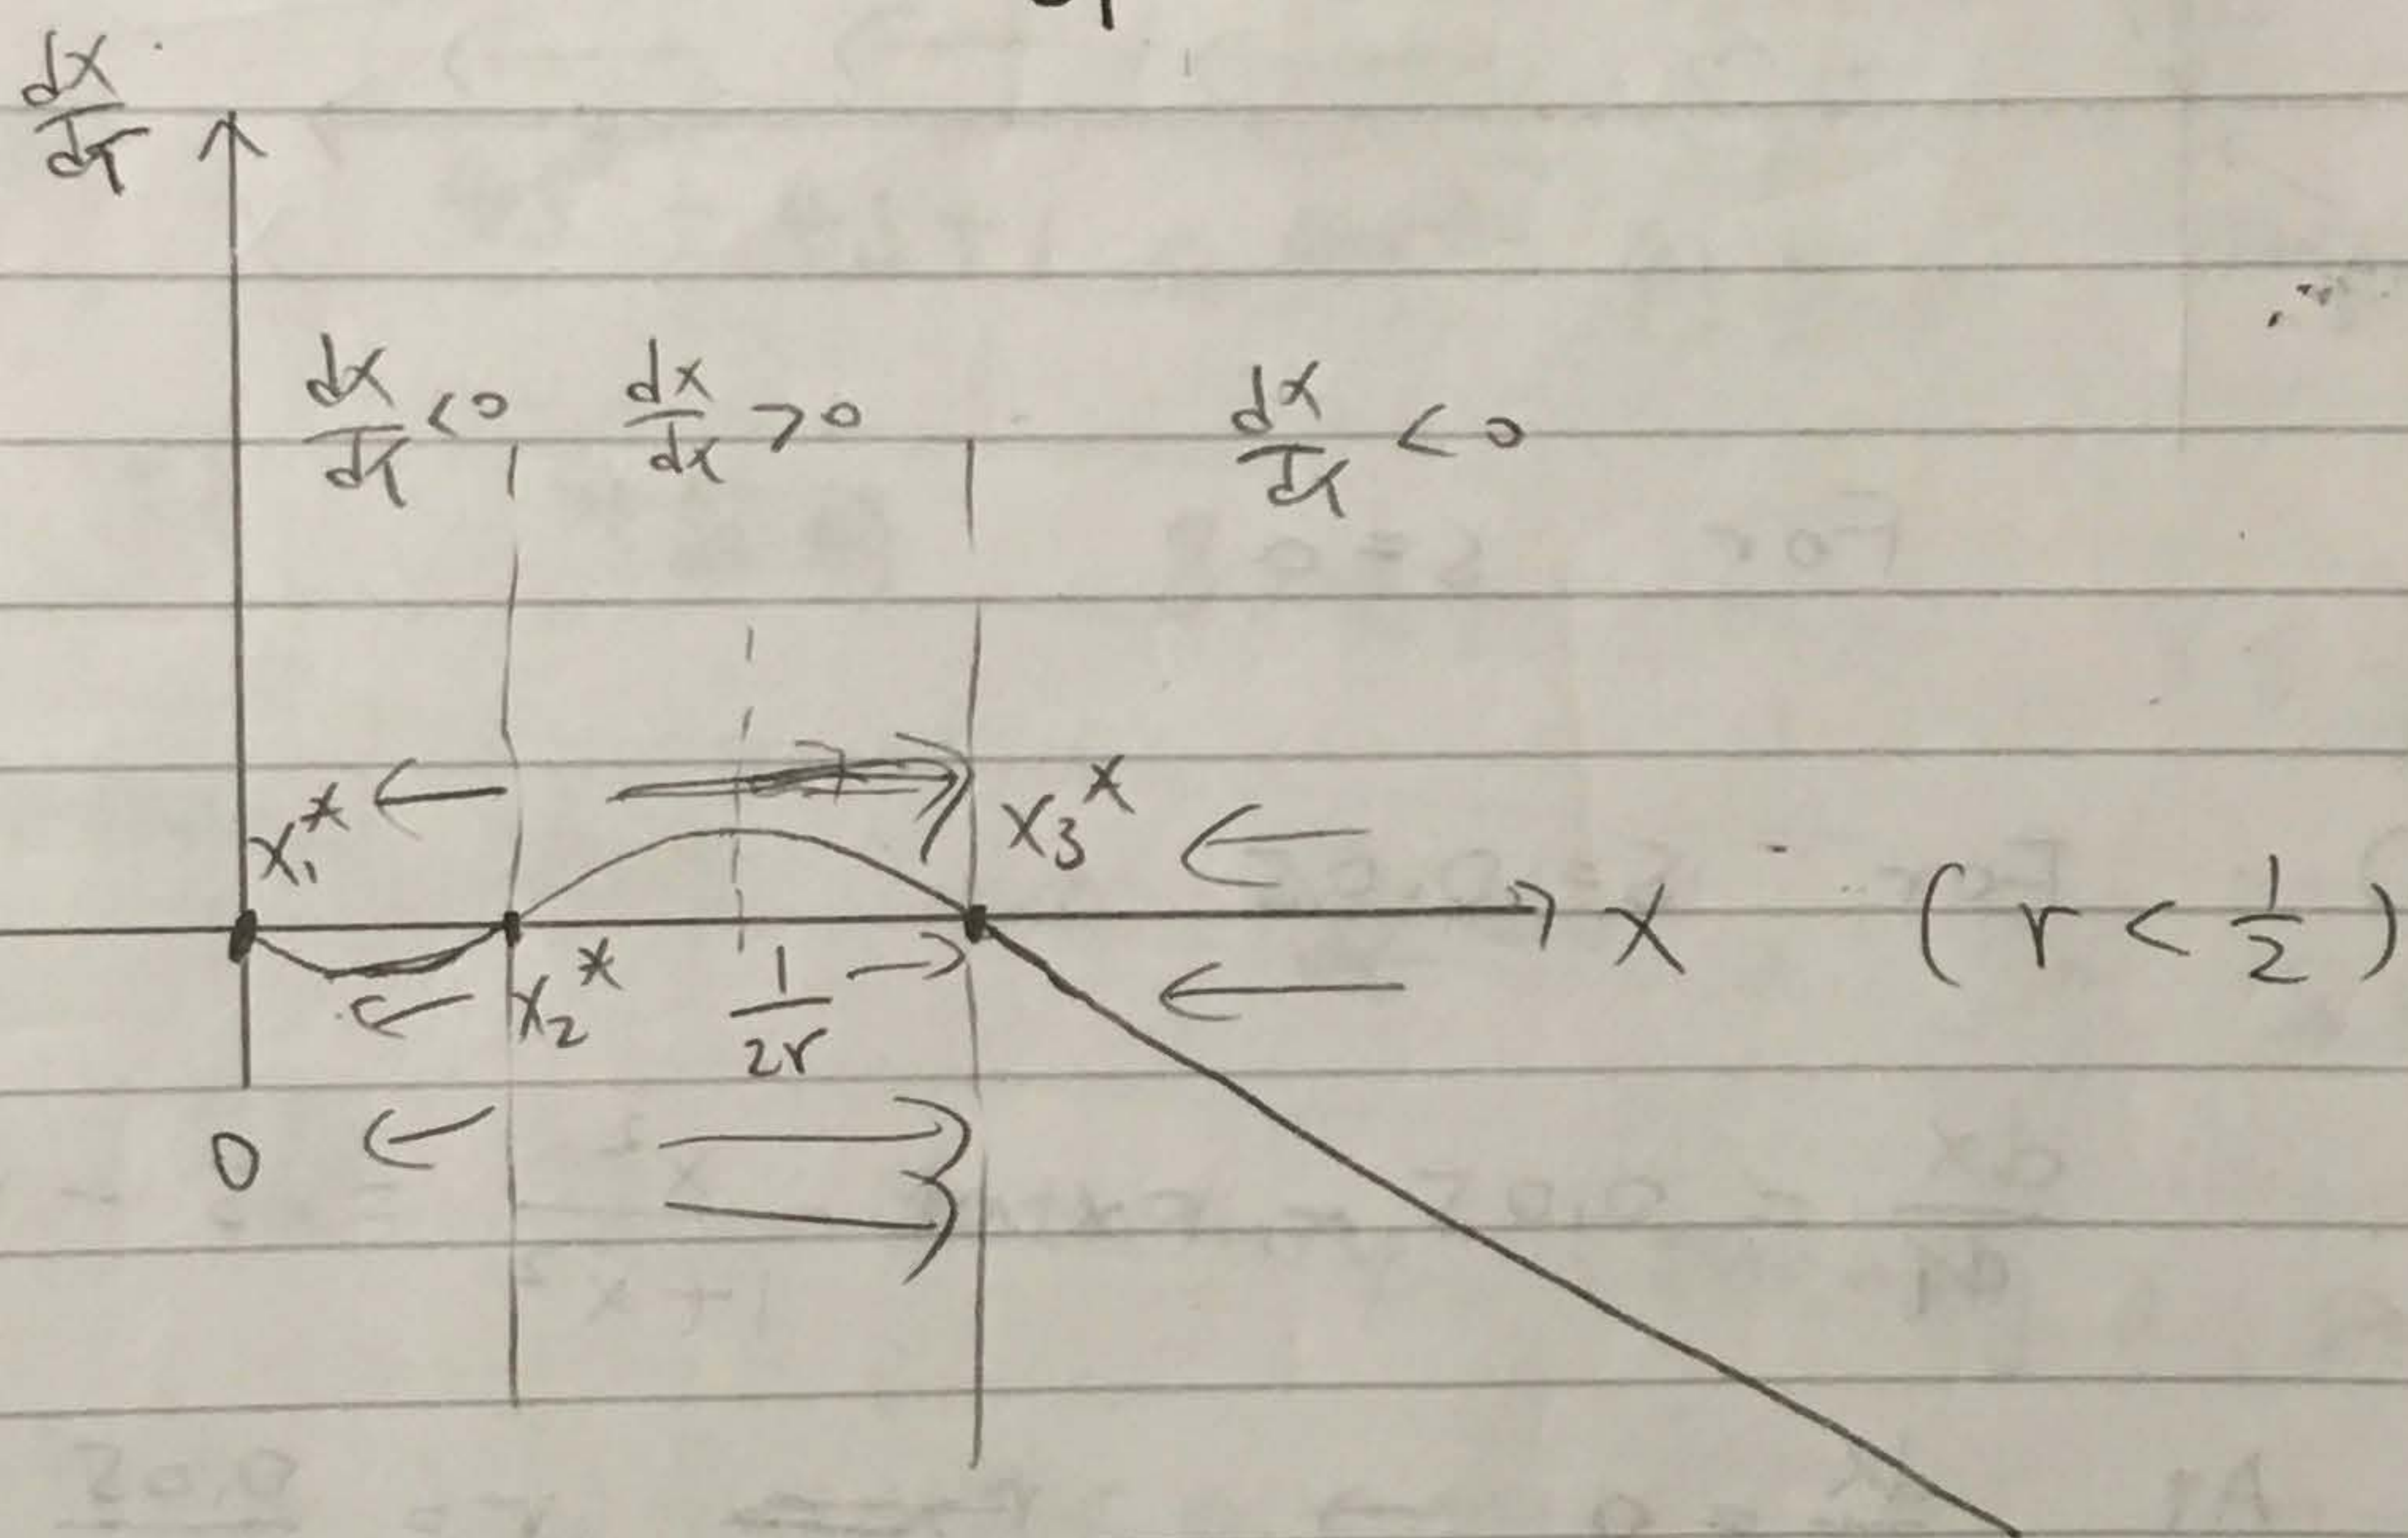 dx/dτ
dx/dτ <0 dx/dx >0 dx/dτ < 0
x₁* ← → x₃* ←
x (r < 1/2)
← x₂* 1/2r → ←
0 ← →
→